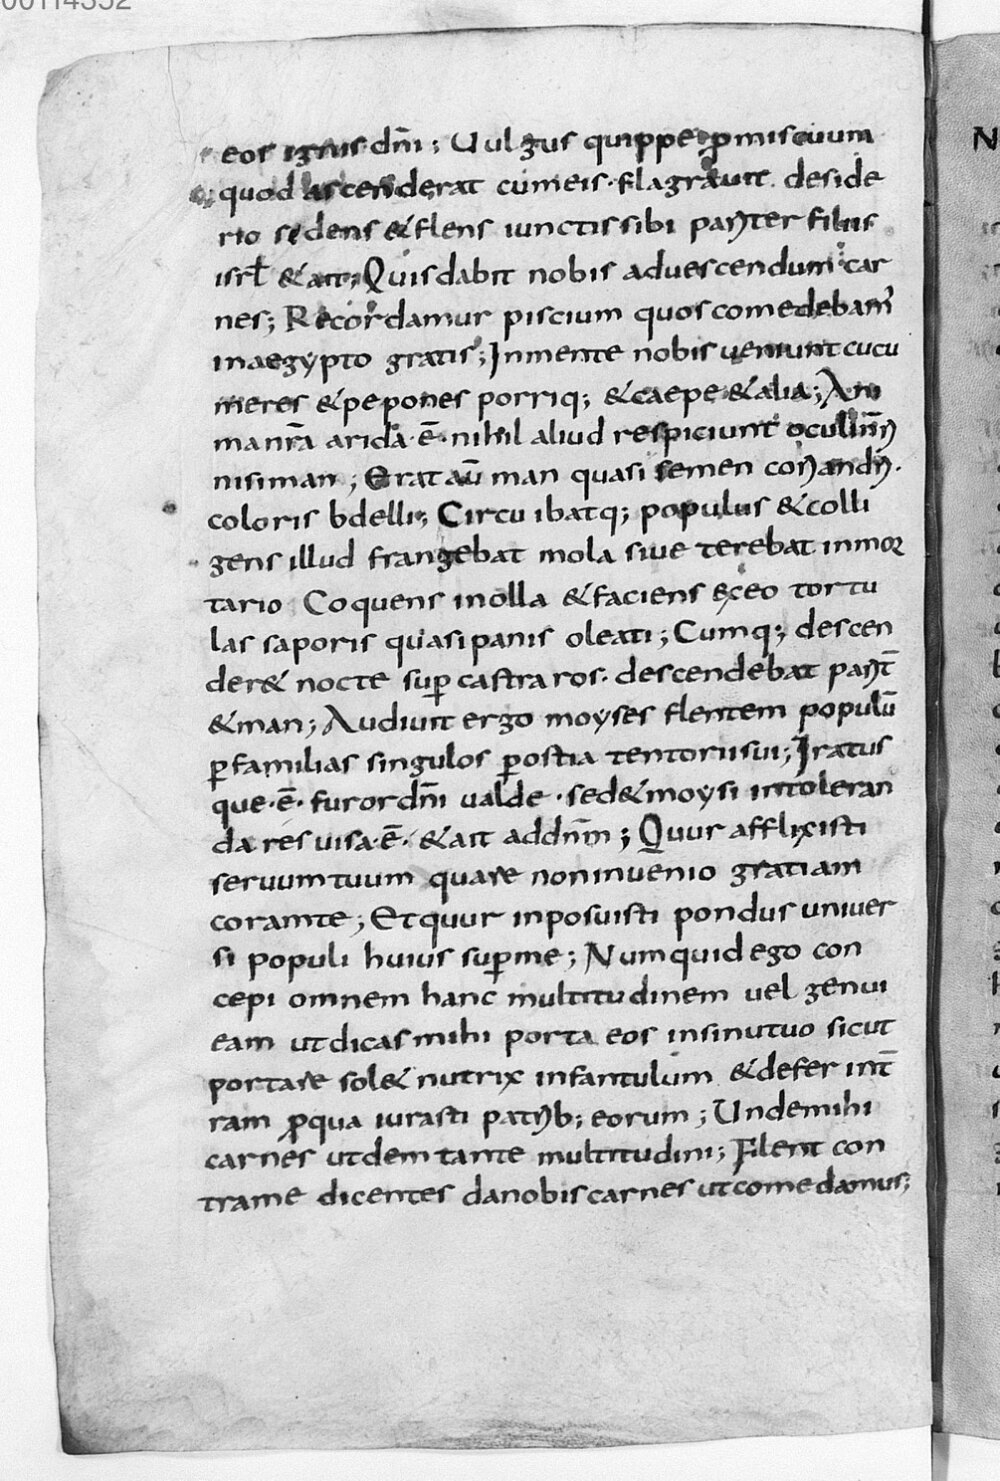 00114352
eos ignis dn̄i; Uulgus quippe ꝓmiscuum
quod ascenderat cumeis·flagrauit deside
rio sedens &flens iunctissibi pariter filiis
isrł &ait; Quisdabit nobis aduescendum car
nes; Recordamur piscium quoscomedebam᾽
inaegypto gratis; Inmente nobis ueniunt cucu
meres &pepones porriq; &caepe &alia; Ani
manr̄a arida·ē·nihil aliud respiciunt oculinr̄i
nisiman; Erat aū man quasi semen coriandri·
coloris bdelli; Circu ibatq; populus &colli
gens illud frangebat mola siue terebat inmor
tario Coquens inolla &faciens exeo tortu
las saporis quasipanis oleati; Cumq; descen
der& nocte suꝑ castra ros· descendebat parit̄
&man; Audiuit ergo moyses flentem populū
ꝑfamilias singulos ꝑostia tentoriisui; Iratus
que·ē· furordn̄i ualde·sed&moysi intoleran
da res uisa·ē· &ait addnm̄; Quur afflixisti
seruumtuum quare noninuenio gratiam
coramte; Etquur inposuisti pondus uniuer
si populi huius suꝑme; Numquid ego con
cepi omnem hanc multitudinem uel genui
eam utdicasmihi porta eos insinutuo sicut
portare sol& nutrix infantulum &defer int̄
ram ꝓqua iurasti patrib; eorum; Undemihi
carnes utdem tante multitudini; Filent con
trame dicentes danobiscarnes utcomedamus;
N